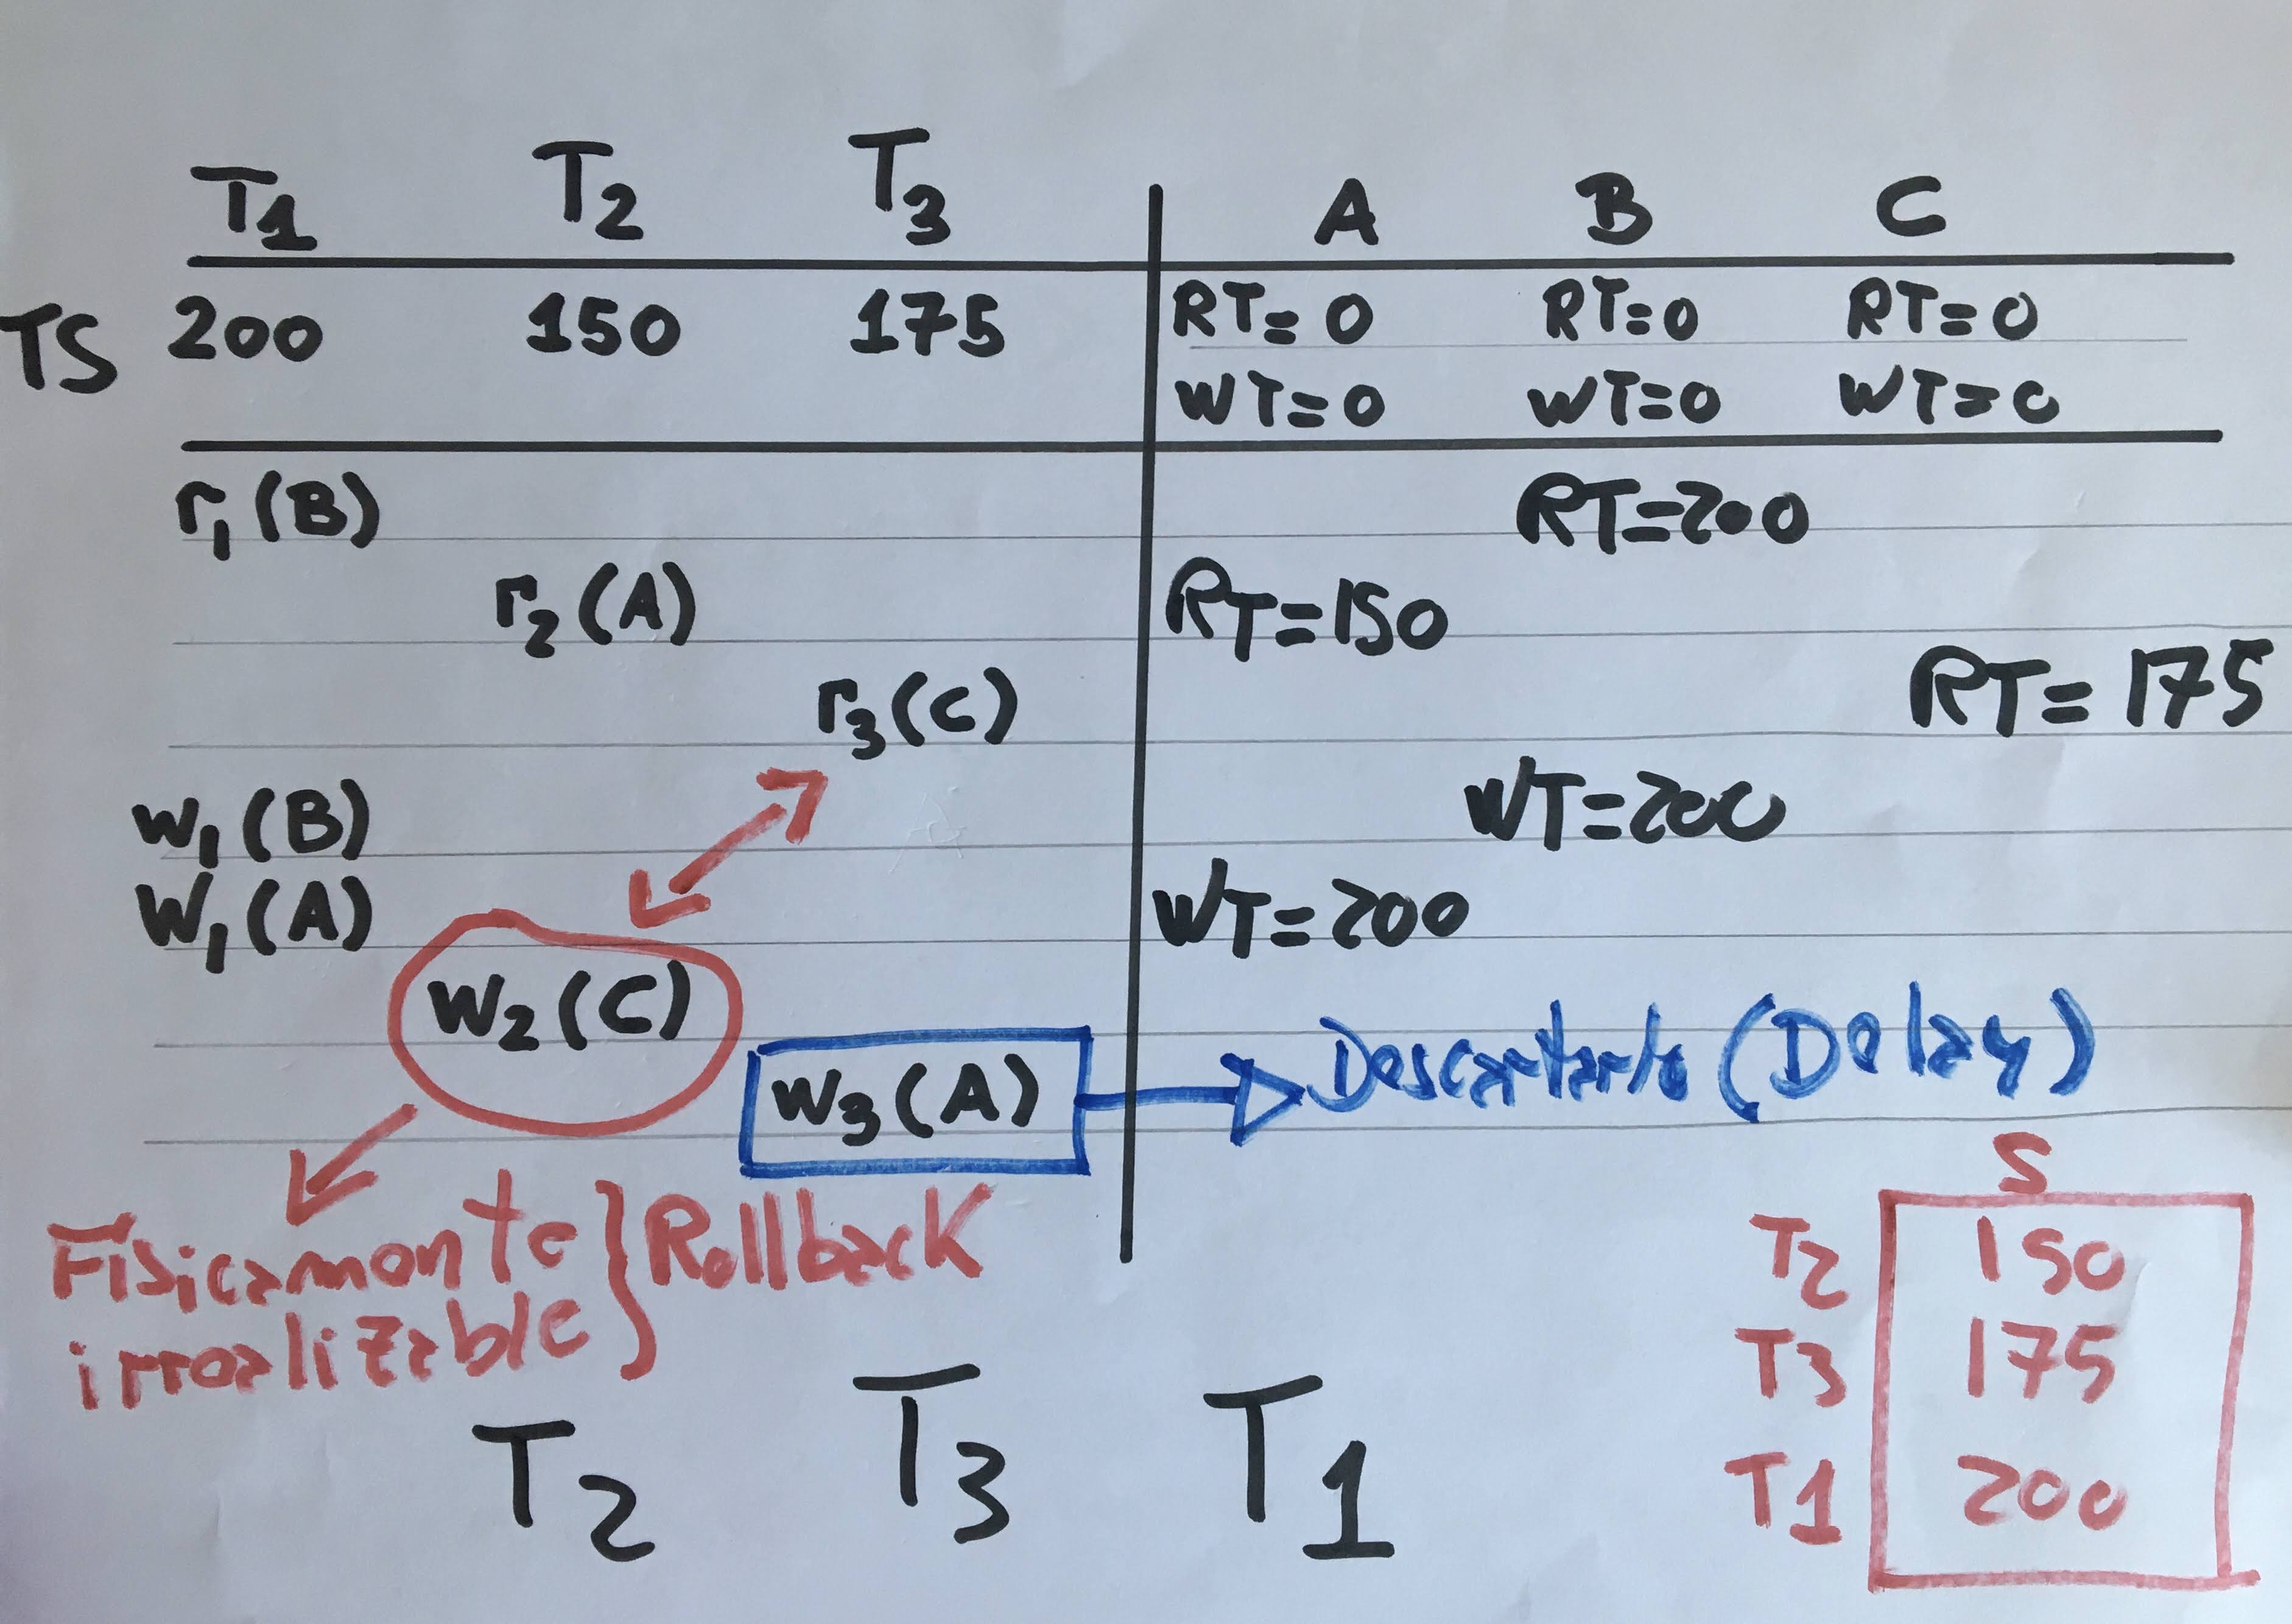 T1 T2 T3 A B C
TS 200 150 175 RT=0 RT=0 RT=0
WT=0 WT=0 WT=0
r1(B) RT=200
r2(A) RT=150
r3(C) RT=175
W1(B) WT=200
W1(A) WT=200
W2(C)
W3(A) Descartarlo (Delay)
Fisicamente irrealizable } Rollback
S
T2 150
T3 175
T1 200
T2 T3 T1